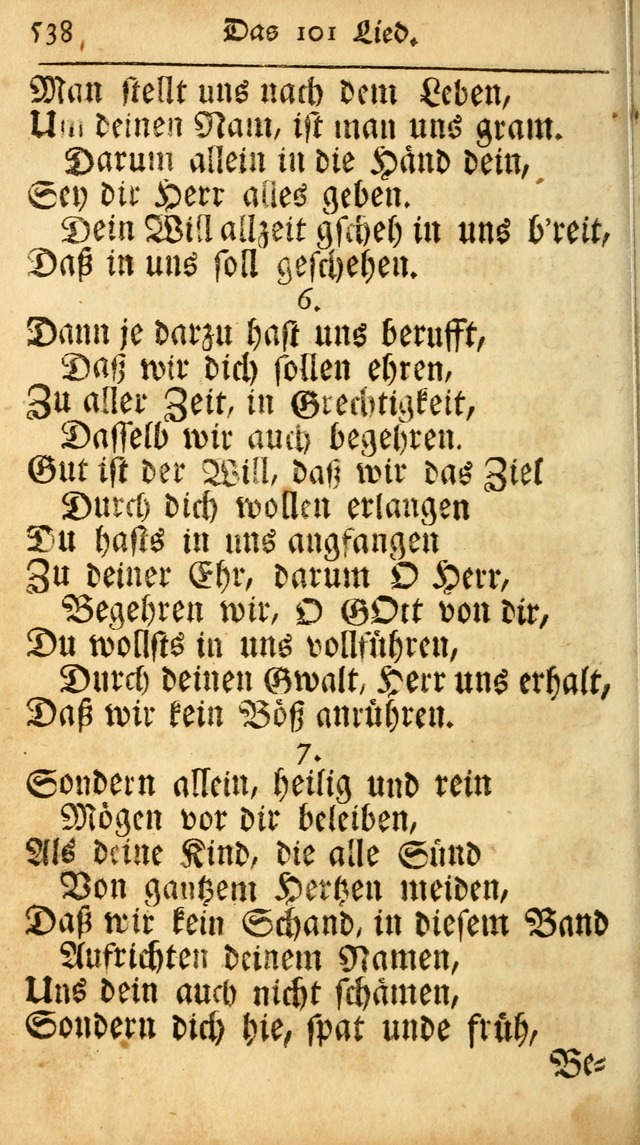 538 Das 101 Lied.
Man stellt uns nach dem Leben,
Um deinen Nam, ist man uns gram.
Darum allein in die Hånd dein,
Sey dir Herr alles geben.
Dein Will allzeit gscheh in uns b'reit,
Daß in uns soll geschehen.
6.
Dann je darzu hast uns berufft,
Daß wir dich sollen ehren,
Zu aller Zeit, in Grechtigkeit,
Dasselb wir auch begehren.
Gut ist der Will, daß wir das Ziel
Durch dich wollen erlangen
Du hasts in uns angfangen
Zu deiner Ehr, darum O Herr,
Begehren wir, O GOtt von dir,
Du wollsts in uns vollfůhren,
Durch deinen Gwalt, Herr uns erhalt,
Daß wir kein Böß anrůhren.
7.
Sondern allein, heilig und rein
Mögen vor dir beleiben,
Als deine Kind, die alle Sůnd
Von gantzem Hertzen meiden,
Daß wir kein Schand, in diesem Band
Aufrichten deinem Namen,
Uns dein auch nicht schåmen,
Sondern dich hie, spat unde frůh,
Be=